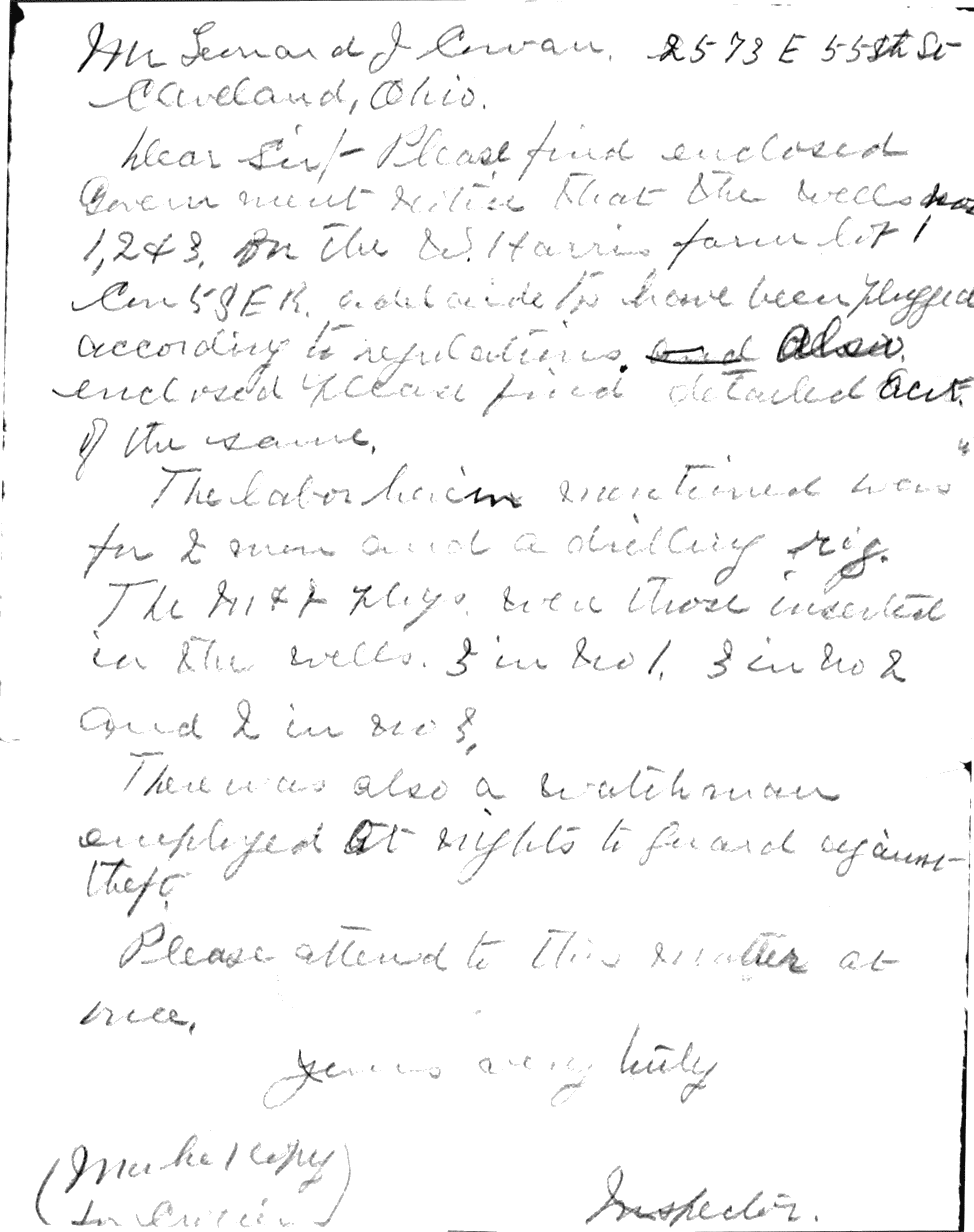 Mr Leonard J Cowan. 2573 E 55th St
Cleveland, Ohio.
Dear Sir/- Please find enclosed
Government notice that the wells nos
1, 2 & 3. on the W. Harris farm lot 1
Con 5 S E R. adelaide tp have been plugged
according to regulations. and also.
enclosed please find detailed acct.
of the same.
The labor herein mentioned was
for 2 men and a drilling rig.
The plugs. were those inserted
in the wells. 3 in no 1, 3 in no 2
and 2 in no 3,
There was also a watchman
employed at nights to guard against
theft.
Please attend to this matter at
once.
yours very truly
(Make 1 copy
Inspector.